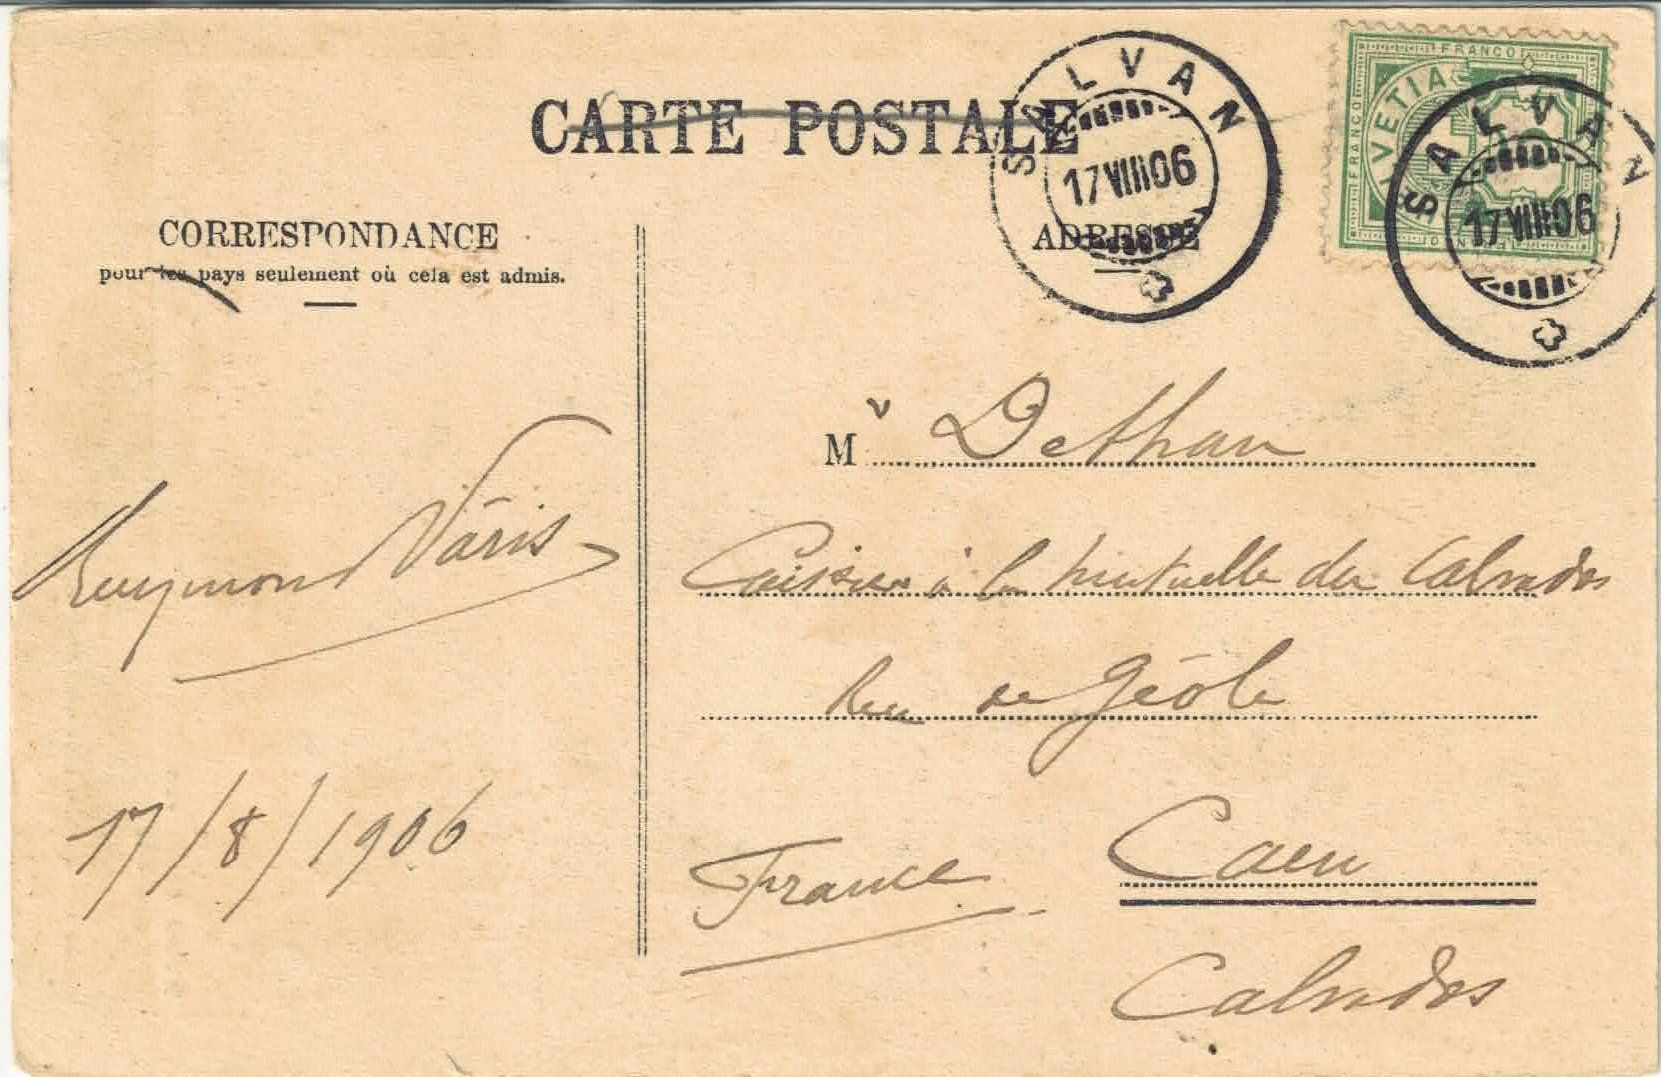 CARTE POSTALE
SALVAN
17 VIII 06
FRANCO
HELVETIA
FRANCO
5
SALVAN
17 VIII 06
CORRESPONDANCE
pour les pays seulement où cela est admis.
ADRESSE
Mr Dethan
Caissier à la Mutuelle du Calvados
Rue de Géole
Caen
France
Calvados
Raymond Vâris
17/8/1906